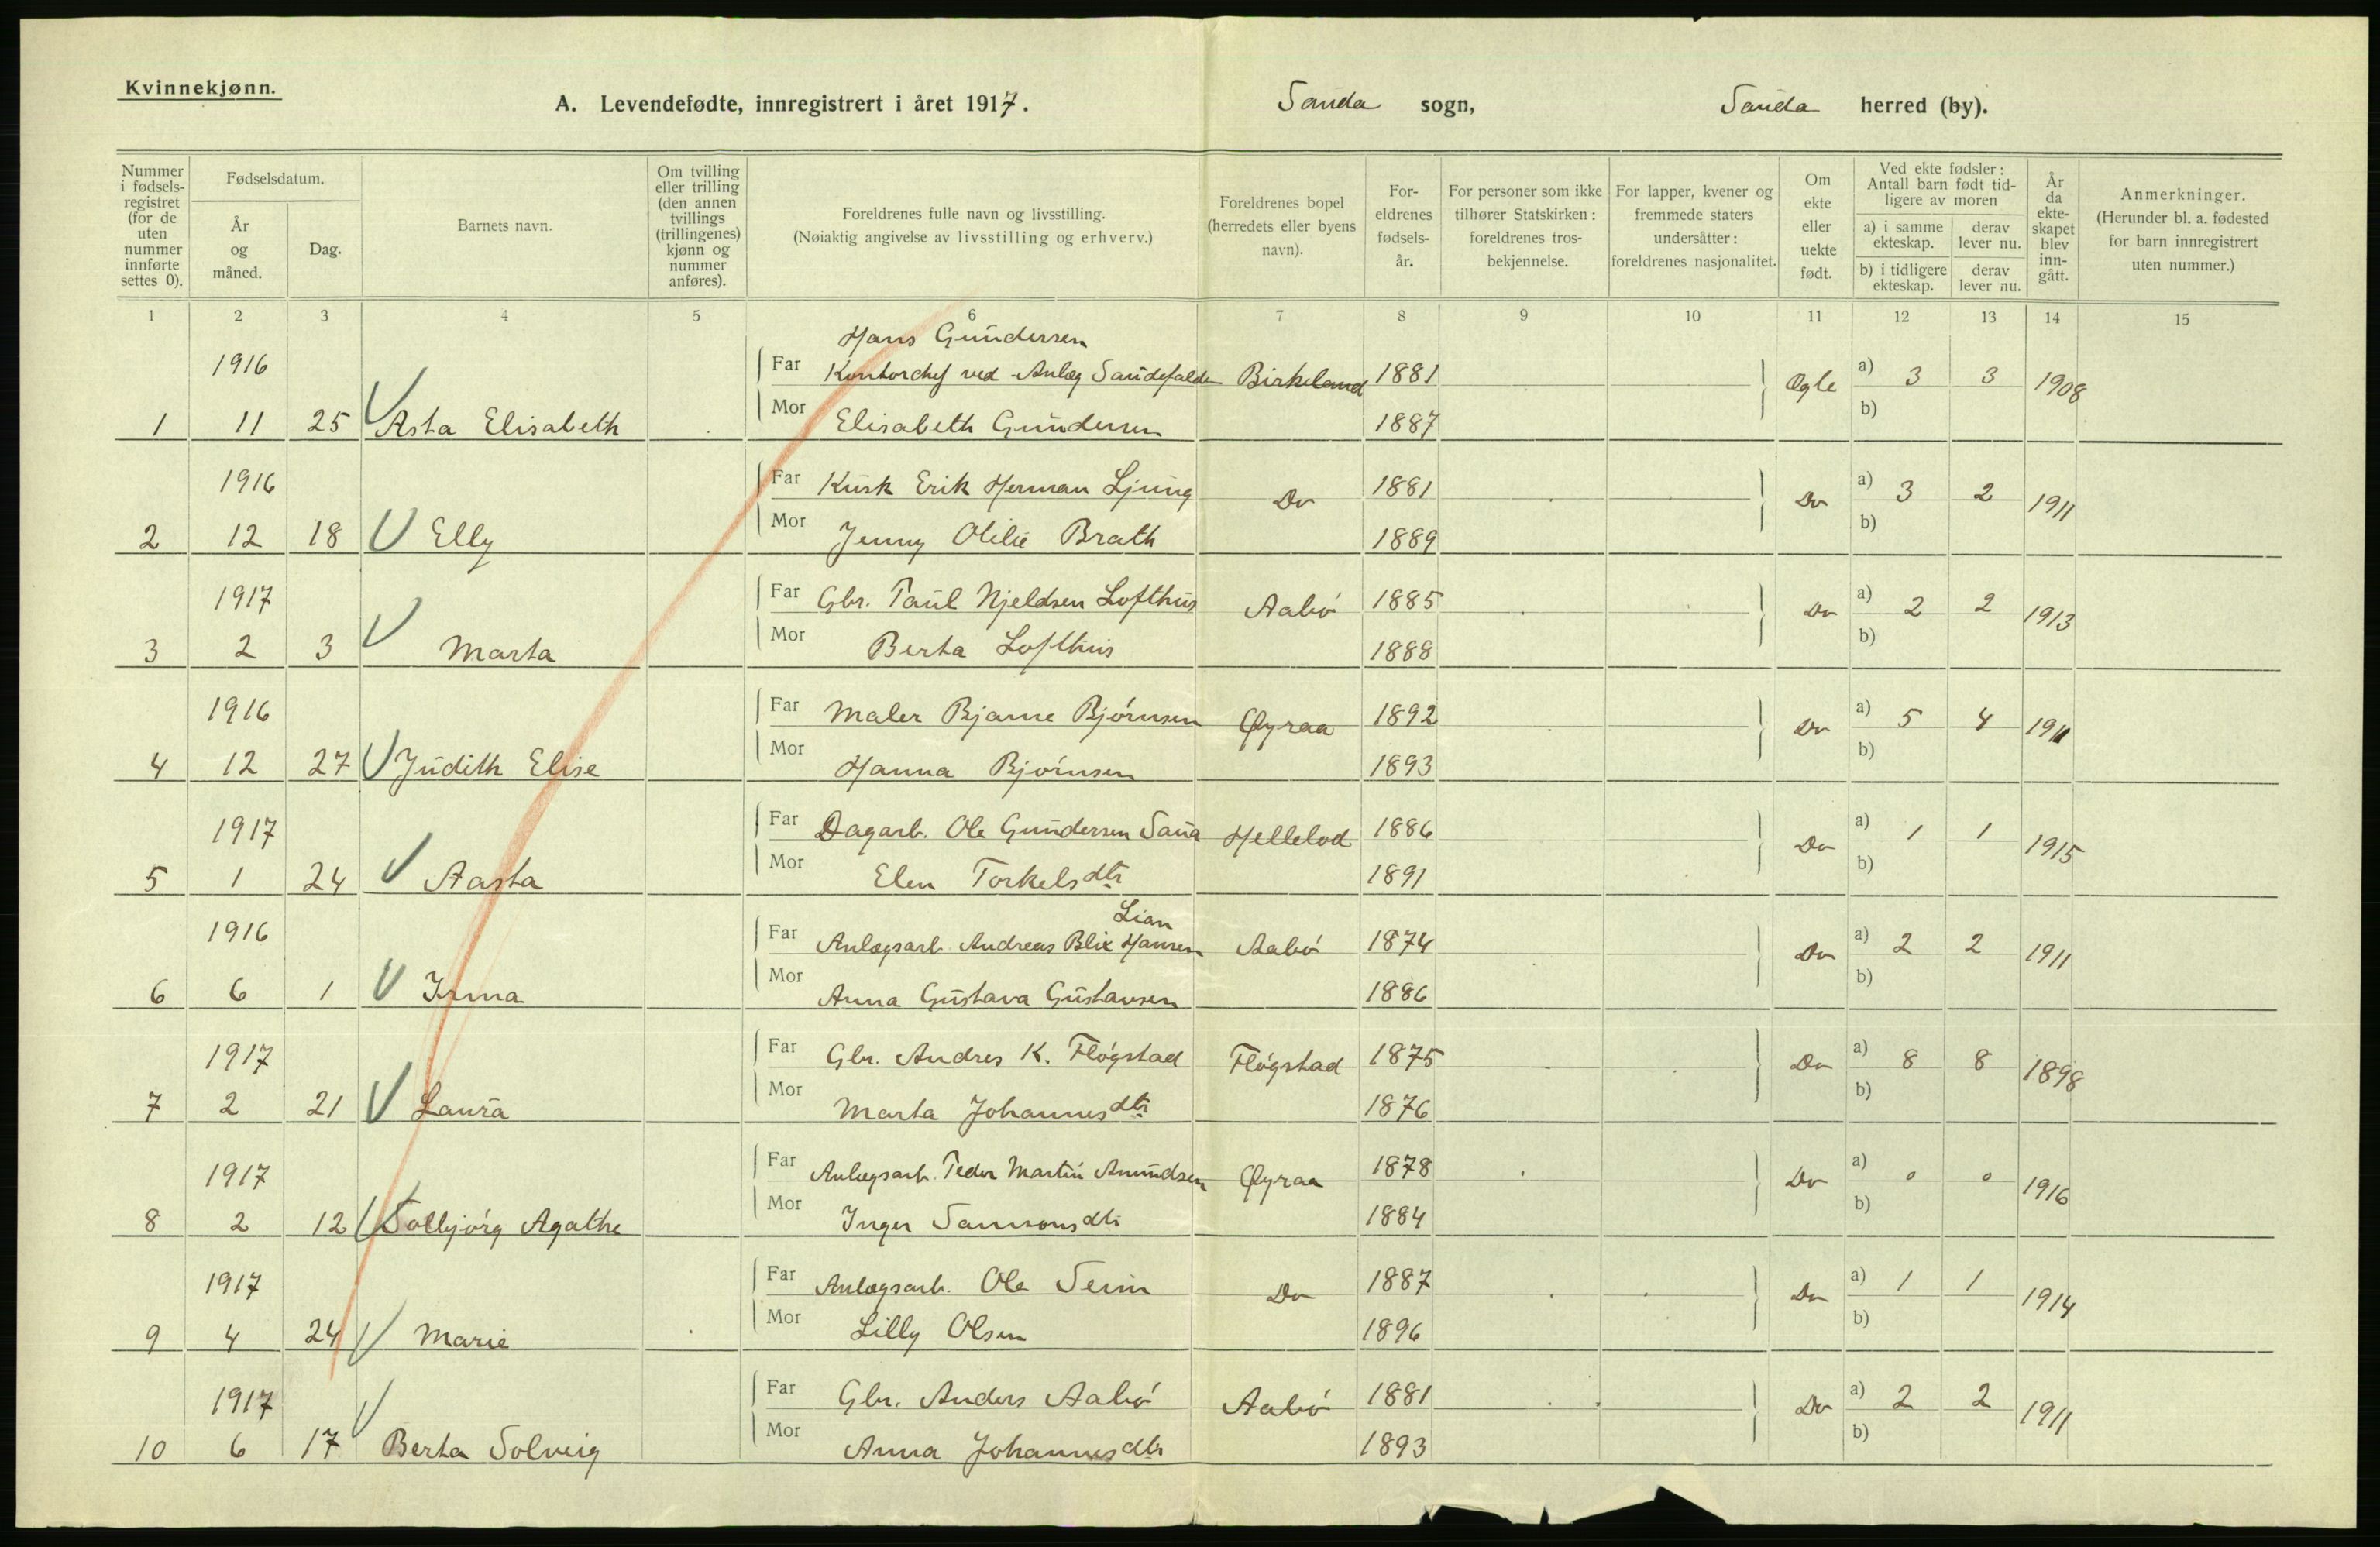 Kvinnekjønn.
A. Levendefødte, innregistrert i året 1917. Sauda sogn, Sauda herred (by).
Nummer i fødselsregistret (for de uten nummer innførte settes 0).
Fødselsdatum.
År og måned.
Dag.
Barnets navn.
Om tvilling eller trilling (den annen tvillings (trillingenes) kjønn og nummer anføres).
Foreldrenes fulle navn og livsstilling.
(Nøiaktig angivelse av livsstilling og erhverv.)
Foreldrenes bopel (herredets eller byens navn).
Foreldrenes fødselsår.
For personer som ikke tilhører Statskirken: foreldrenes trosbekjennelse.
For lapper, kvener og fremmede staters undersåtter: foreldrenes nasjonalitet.
Om ekte eller uekte født.
Ved ekte fødsler: Antall barn født tidligere av moren
a) i samme ekteskap. derav lever nu.
b) i tidligere ekteskap. derav lever nu.
År da ekteskapet blev inngått.
Anmerkninger.
(Herunder bl. a. fødested for barn innregistrert uten nummer.)
1 2 3 4 5 6 7 8 9 10 11 12 13 14 15
Hans Gundersen
1916 Far Kontorchef ved Anlæg Saudefalde Birkeland 1881 Ægte a) 3 3 1908
1 11 25 Asta Elisabeth Mor Elisabeth Gundersen 1887 b)
1916 Far Kusk Erik Herman Ljung Do 1881 Do a) 3 2 1911
2 12 18 Elly Mor Jenny Olilie Brath 1889 b)
1917 Far Gbr. Paul Njeldsen Lofthus Aabø 1885 Do a) 2 2 1913
3 2 3 Marta Mor Berta Lofthus 1888 b)
1916 Far Maler Bjarne Bjørnsen Øyraa 1892 Do a) 5 4 1911
4 12 27 Judith Elise Mor Hanna Bjørnsen 1893 b)
1917 Far Dagarb. Ole Gundersen Saua Hellelod 1886 Do a) 1 1 1915
5 1 24 Aasta Mor Elen Torkelsdtr 1891 b)
Lian
1916 Far Anlægsarb. Andreas Blix Hansen Aabø 1874 Do a) 2 2 1911
6 6 1 Irma Mor Anna Gustava Gustavsen 1886 b)
1917 Far Gbr. Andres K. Fløgstad Fløgstad 1875 Do a) 8 8 1898
7 2 21 Laura Mor Marta Johannesdtr 1876 b)
1917 Far Anlægsarb. Peder Martin Amundsen Øyraa 1878 Do a) 0 0 1916
8 2 12 Solbjørg Agathe Mor Inger Samsonsdtr 1884 b)
1917 Far Anlægsarb. Ole Seim Do 1887 Do a) 1 1 1914
9 4 24 Marie Mor Lilly Olsen 1896 b)
1917 Far Gbr. Anders Aabø Aabø 1881 Do a) 2 2 1911
10 6 17 Berta Solveig Mor Anna Johannesdtr 1893 b)